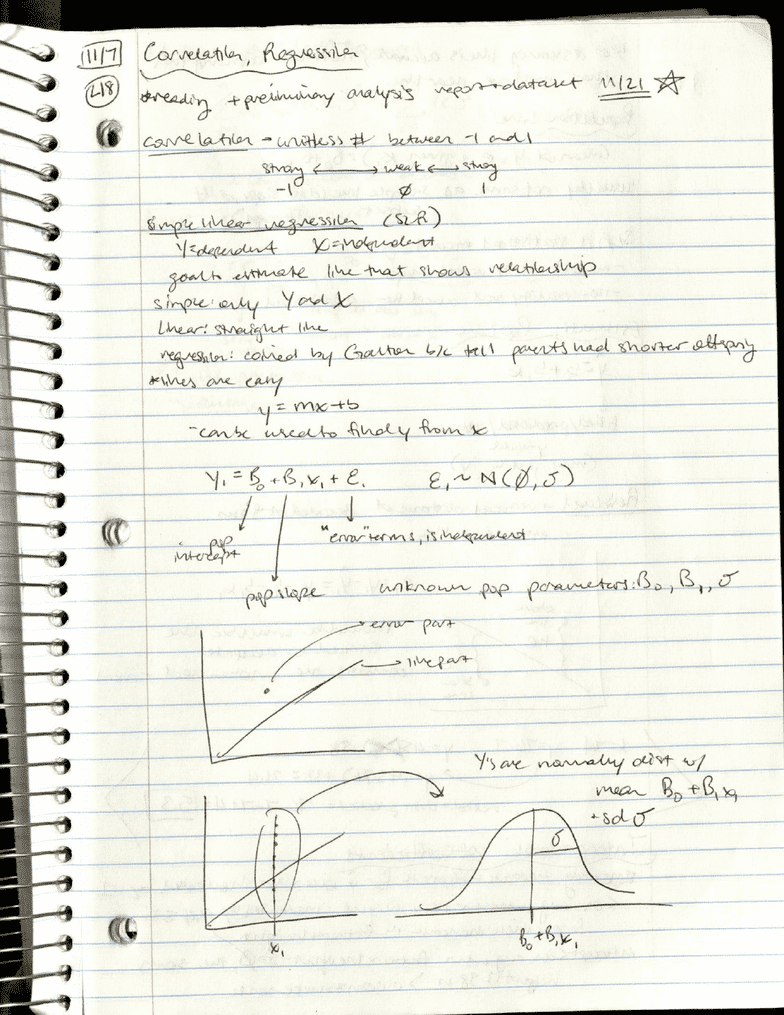 11/7 Correlation, Regression
L18
*reading + preliminary analysis report + dataset 11/21 ☆
correlation - unitless # between -1 and 1
strong ←→ weak ←→ strong
-1 0 1
simple linear regression (SLR)
Y=dependent X=independent
goal to estimate line that shows relationship
simple: only Y and X
linear: straight line
regression: coined by Galton b/c tall parents had shorter offspring
*lines are easy
y = mx + b
-can be used to find y from x
Y₁ = B₀ + B₁x₁ + Ɛ₁ Ɛ₁ ~ N(0, σ)
pop intercept
"error" terms, is independent
pop slope
unknown pop parameters: B₀, B₁, σ
error part
line part
Y's are normally dist w/
mean B₀ + B₁x₁
+ sd σ
σ
x₁
B₀ + B₁x₁